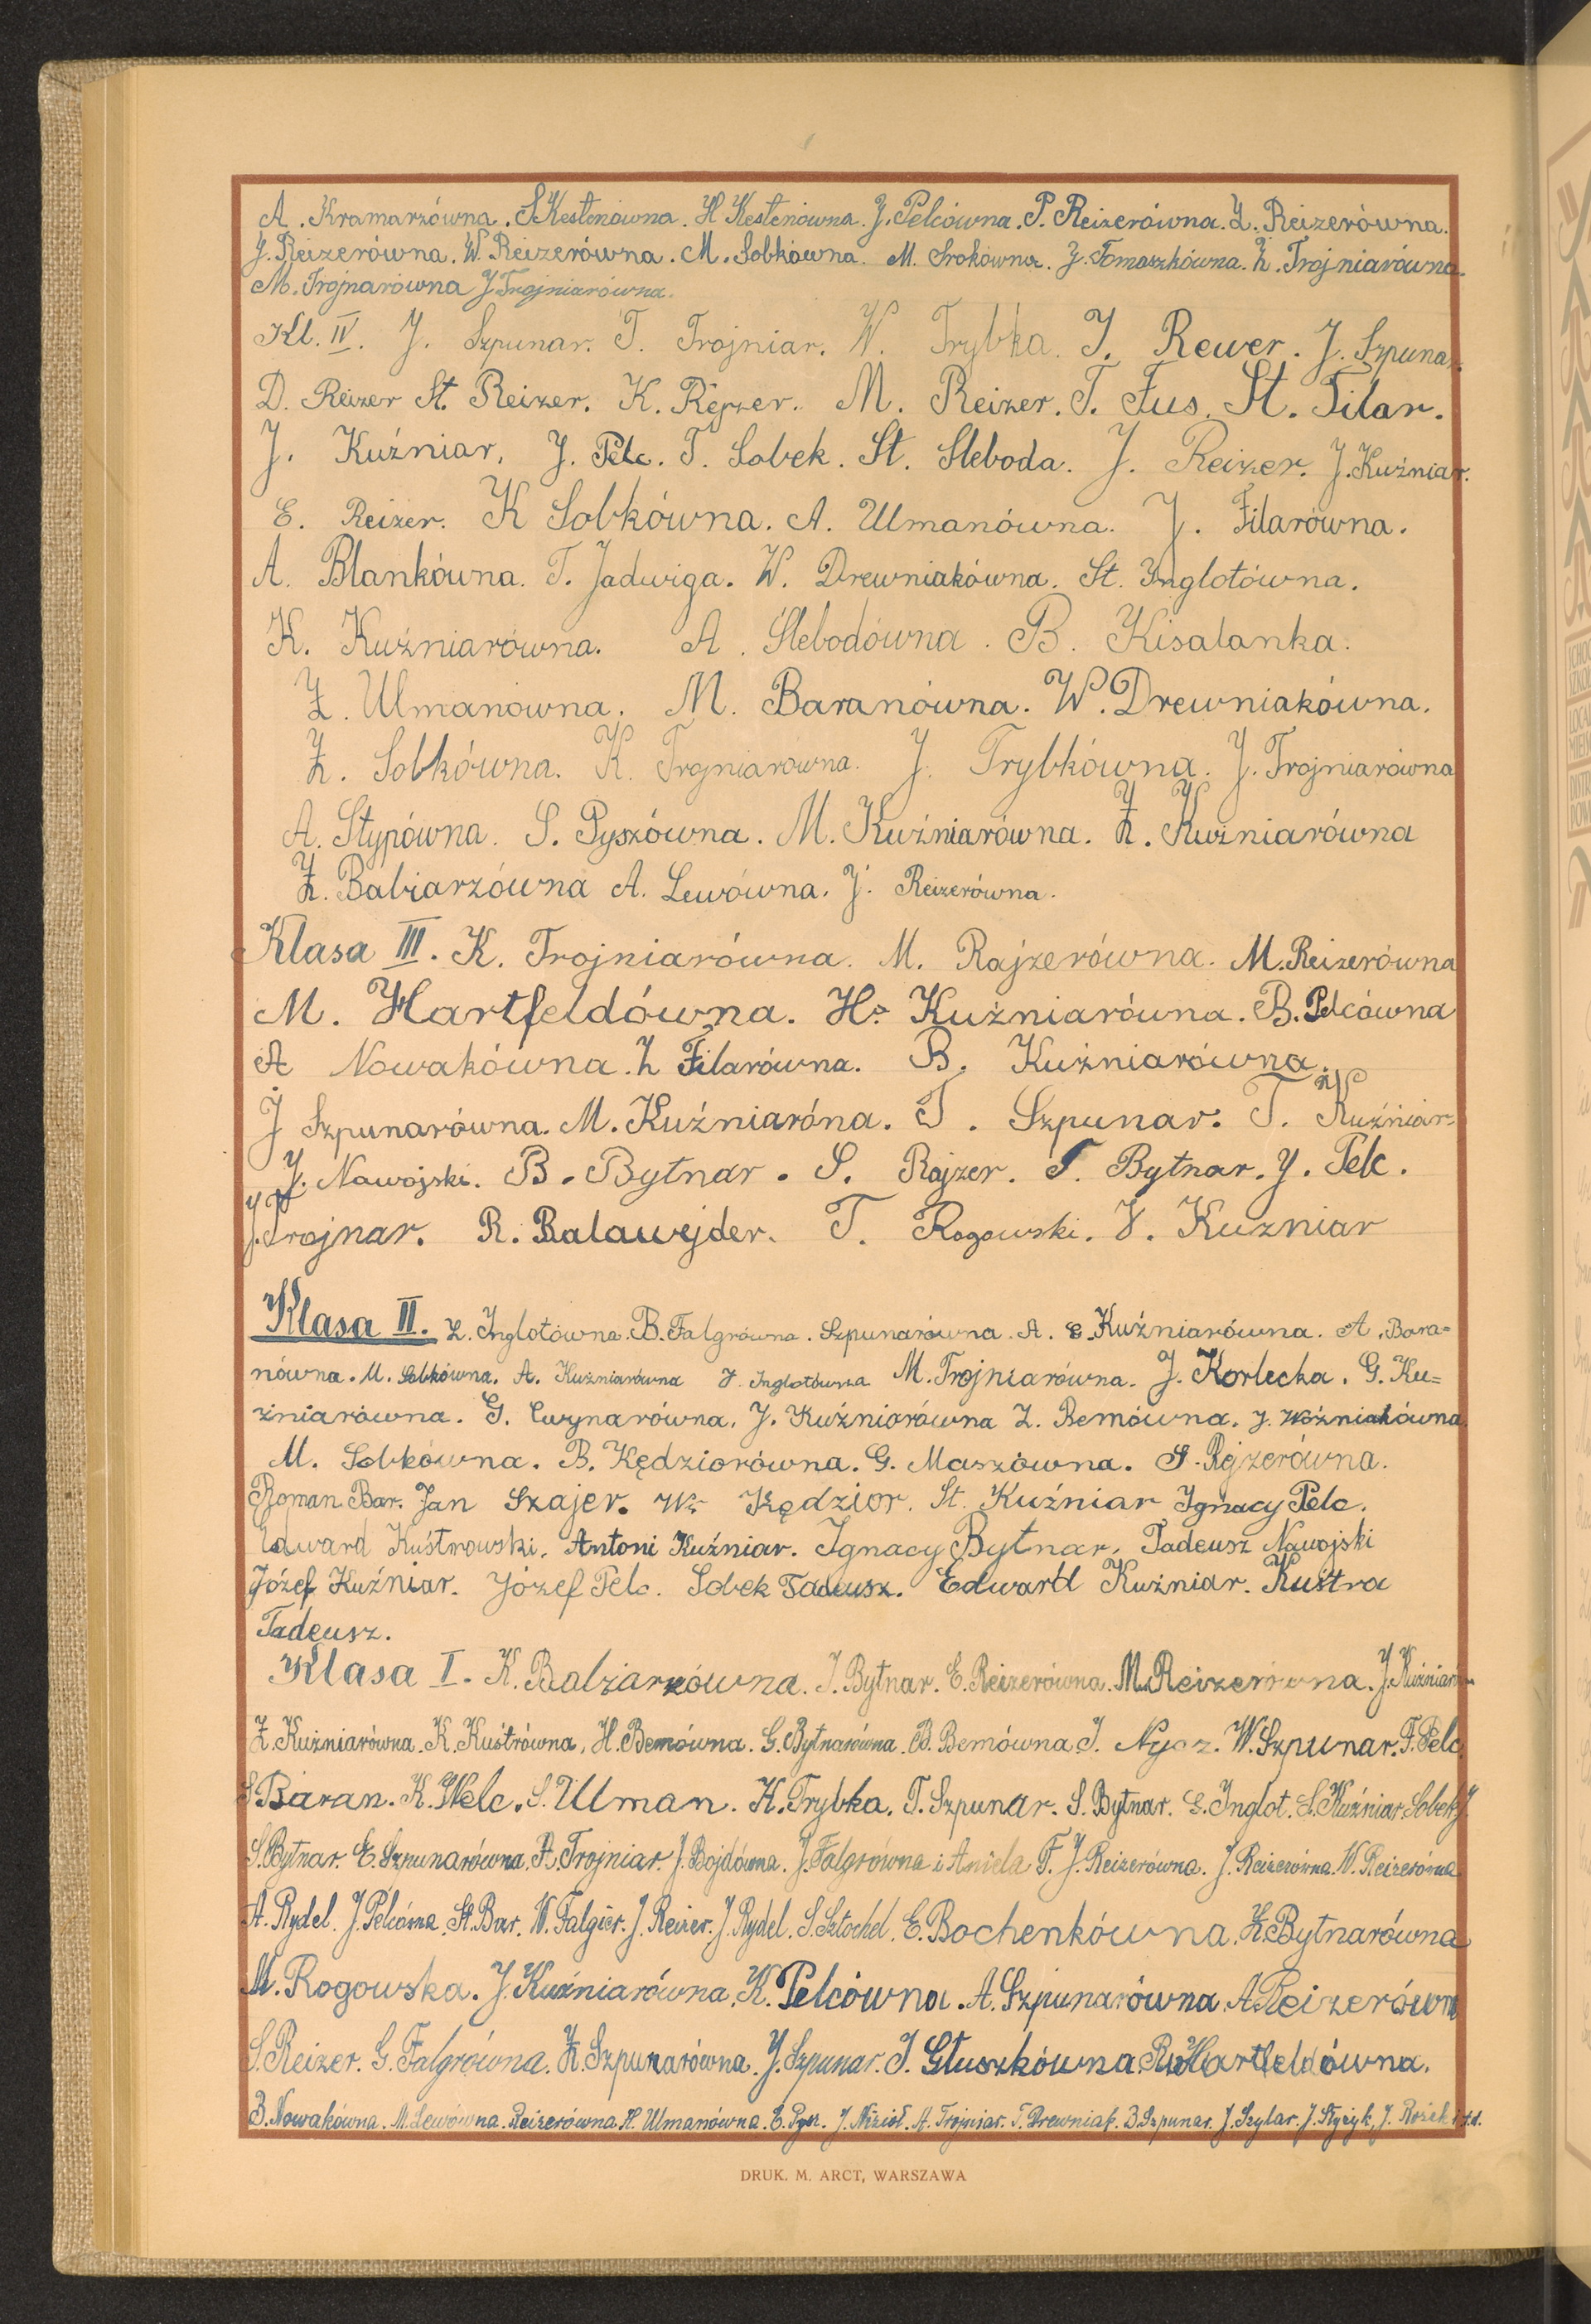 A. Kramarzówna. S Kestenówna. H Kestenówna. J. Pelcówna. P. Reizerówna. Z. Reizerówna.
J. Reizerówna. W. Reizerówna. M. Sobkówna. M. Srokówna. J. Tomaszkówna. Z. Trojniarówna.
M. Trojnarówna J Trojniarówna.
Kl. IV. J. Szpunar. T. Trojniar. W. Trybka. J. Rewer. J. Szpunar.
D. Reizer St. Reizer. K. Rejzer. M. Reizer. T. Fus. St. Filar.
J. Kuźniar. J. Pelc. T. Sobek. St. Sleboda. J. Reizer. J. Kuźniar.
E. Reizer. K Sobkówna. A. Ulmanówna. J. Filarówna.
A. Blankówna. T. Jadwiga. W. Drewniakówna. St. Inglotówna.
K. Kuźniarówna. A. Ślebodówna. B. Kisalanka.
Z. Ulmanówna. M. Baranówna. W. Drewniakówna.
Z. Sobkówna. K. Trojniarówna. J. Trybkówna. J. Trojniarówna
A. Stypówna. S. Pyszówna. M. Kuźniarówna. Z. Kuźniarówna
Z. Babiarzówna A. Lewówna. J. Reizerówna.
Klasa III. K. Trojniarówna. M. Rajzerówna. M. Reizerówna
M. Hartfeldówna. H. Kuźniarówna. B. Pelcówna
A Nowakówna. Z Filarówna. B. Kuźniarówna.
J Szpunarówna. M. Kuźniaróna. T. Szpunar. T. Kuźniar
J. Nawojski. B. Bytnar. S. Rajzer. T. Bytnar. J. Pelc.
J. Trojnar. R. Balawejder. T. Rogowski. J. Kuzniar
Klasa II. Z. Inglotówna. B. Falgrówna. Szpunarówna. A. E. Kuźniarówna. A. Bara=
nówna. M. Sobkówna. A. Kuźniarówna J. Inglotówna M. Trojniarówna. J. Korlecka. G. Ku=
źniarówna. G. Cwynarówna. J. Kuźniarówna Z. Bemówna. J. Woźniakówna.
M. Sobkówna. B. Kędziorówna. G. Maszówna. S. Rejzerówna.
Roman Bar. Jan Szajer. Wł. Kędzior. St. Kuźniar Ignacy Pelc.
Edward Kuśtrowski. Antoni Kuźniar. Ignacy Bytnar. Tadeusz Nawojski
Józef Kuźniar. Józef Pelc. Sobek Tadeusz. Edward Kuźniar. Kuśtra
Tadeusz.
Klasa I. K. Babiarzówna. J. Bytnar. E. Reizerówna. M. Reizerówna. J. Kuźniar
Z. Kuźniarówna. K. Kuśtrówna. H. Bemówna. G. Bytnarówna. B. Bemówna J. Nycz. W. Szpunar. F. Pelc.
S Baran. K. Welc. S. Ulman. K. Trybka. T. Szpunar. S. Bytnar. E. Inglot. S. Kuźniar. Sobek J.
S. Bytnar. E. Szpunarówna. A. Trojniar. J. Bojdówna. J. Falgrówna i Aniela F. J. Reizerówna. J. Reizerówna. W. Reizerówna
A. Rydel. J. Pelcówna. St. Bar. W. Falgier. J. Reizer. J. Rydel. S. Sztochel. E. Bochenkówna. Z. Bytnarówna
M. Rogowska. J. Kuźniarówna. K. Pelcówna. A. Szpunarówna. A. Reizerówn
S. Reizer. G. Falgrówna. Z. Szpunarówna. J. Szpunar. J. Głuszkówna. R. Hartfeldówna.
B. Nowakówna. M. Lewówna. Reizerówna. H. Ulmanówna. E. Pysz. J. Nizioł. A. Trojniar. T. Drewniak. B. Szpunar. J. Szylar. J. Styzyk, J. Rożek i t.d.
DRUK. M. ARCT, WARSZAWA